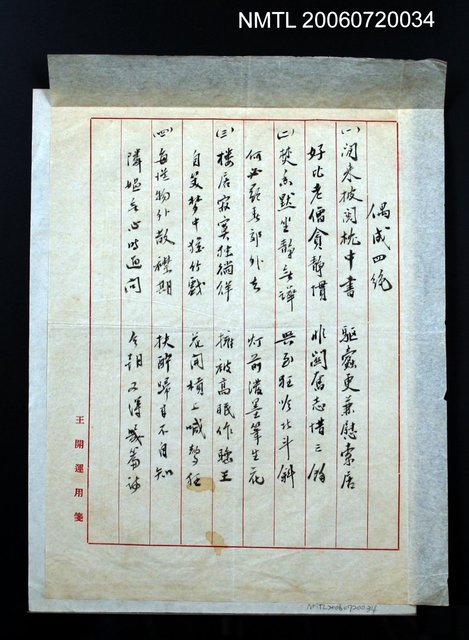 NMTL 20060720034
偶成四绝
(一) 闲来披阅枕中書 驅蠹更兼慰索居
好比老僧貪静慣 非關居志惜三餘
(二) 焚香默坐静無譁 興至狂吟北斗斜
何必尋春郊外去 灯前潑墨筆生花
(三) 楼居寂寞独徜徉 擁被高眠作睡王
自笑夢中猶竹戲 花開槓上喊聲狂
(四) 每從物外散襟期 扶醉歸來不自知
隣媪無心時過问 今朝又得幾篇詩
王開運用箋
NMTL20060720034